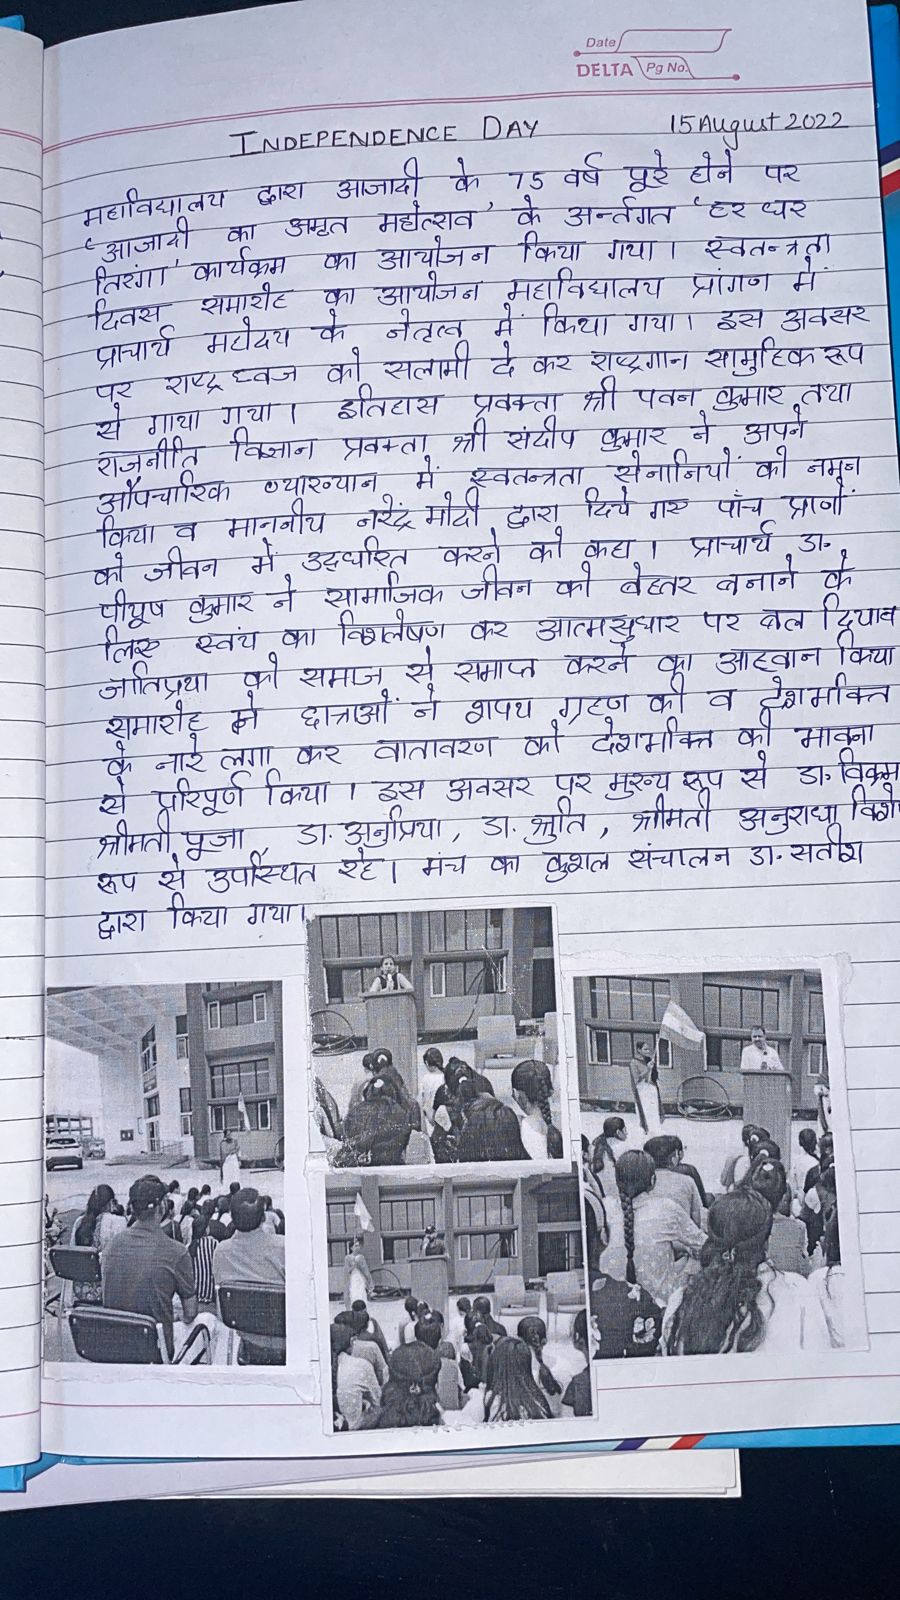 Date
DELTA Pg No.
INDEPENDENCE DAY 15 August 2022
महाविद्यालय द्वारा आजादी के 75 वर्ष पूरे होने पर
'आजादी का अमृत महोत्सव' के अर्न्तगत 'हर घर
तिरंगा' कार्यक्रम का आयोजन किया गया। स्वतन्त्रता
दिवस समारोह का आयोजन महाविद्यालय प्रांगण में
प्राचार्य महोदय के नेतृत्व में किया गया। इस अवसर
पर राष्ट्रध्वज को सलामी दे कर राष्ट्रगान सामुहिक रूप
से गाया गया। इतिहास प्रवक्ता श्री पवन कुमार तथा
राजनीति विज्ञान प्रवक्ता श्री संदीप कुमार ने अपने
औपचारिक व्याख्यान में स्वतन्त्रता सेनानियों को नमन
किया व माननीय नरेंद्र मोदी द्वारा दिये गए पाँच प्राणों
को जीवन में उद्धरित करने को कहा। प्राचार्य डा.
पीयूष कुमार ने सामाजिक जीवन को बेहतर बनाने के
लिए स्वंय का विश्लेषण कर आत्मसुधार पर बल दिया व
जातिप्रथा को समाज से समाप्त करने का आहवान किया
समारोह में छात्राओं ने शपथ ग्रहण की व देशभक्ति
के नारे लगा कर वातावरण को देशभक्ति की भावना
से परिपूर्ण किया। इस अवसर पर मुख्य रूप से डा. विक्रम
श्रीमती पूजा, डा. अनुप्रिया, डा. श्रुति, श्रीमती अनुराधा विशे
रूप से उपस्थित रहे। मंच का कुशल संचालन डा. सतीश
द्वारा किया गया।